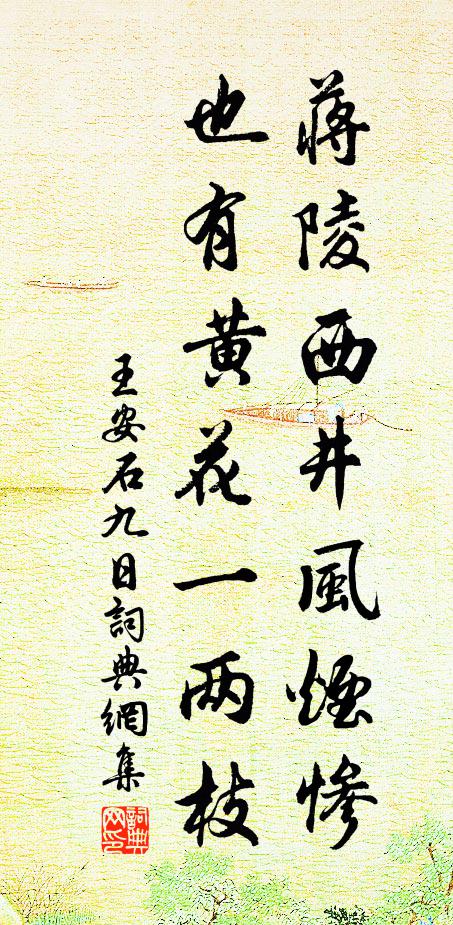 蒋陵西井風煙慘
也有黄花一两枝
王安石九日詞典網集
詞典網印